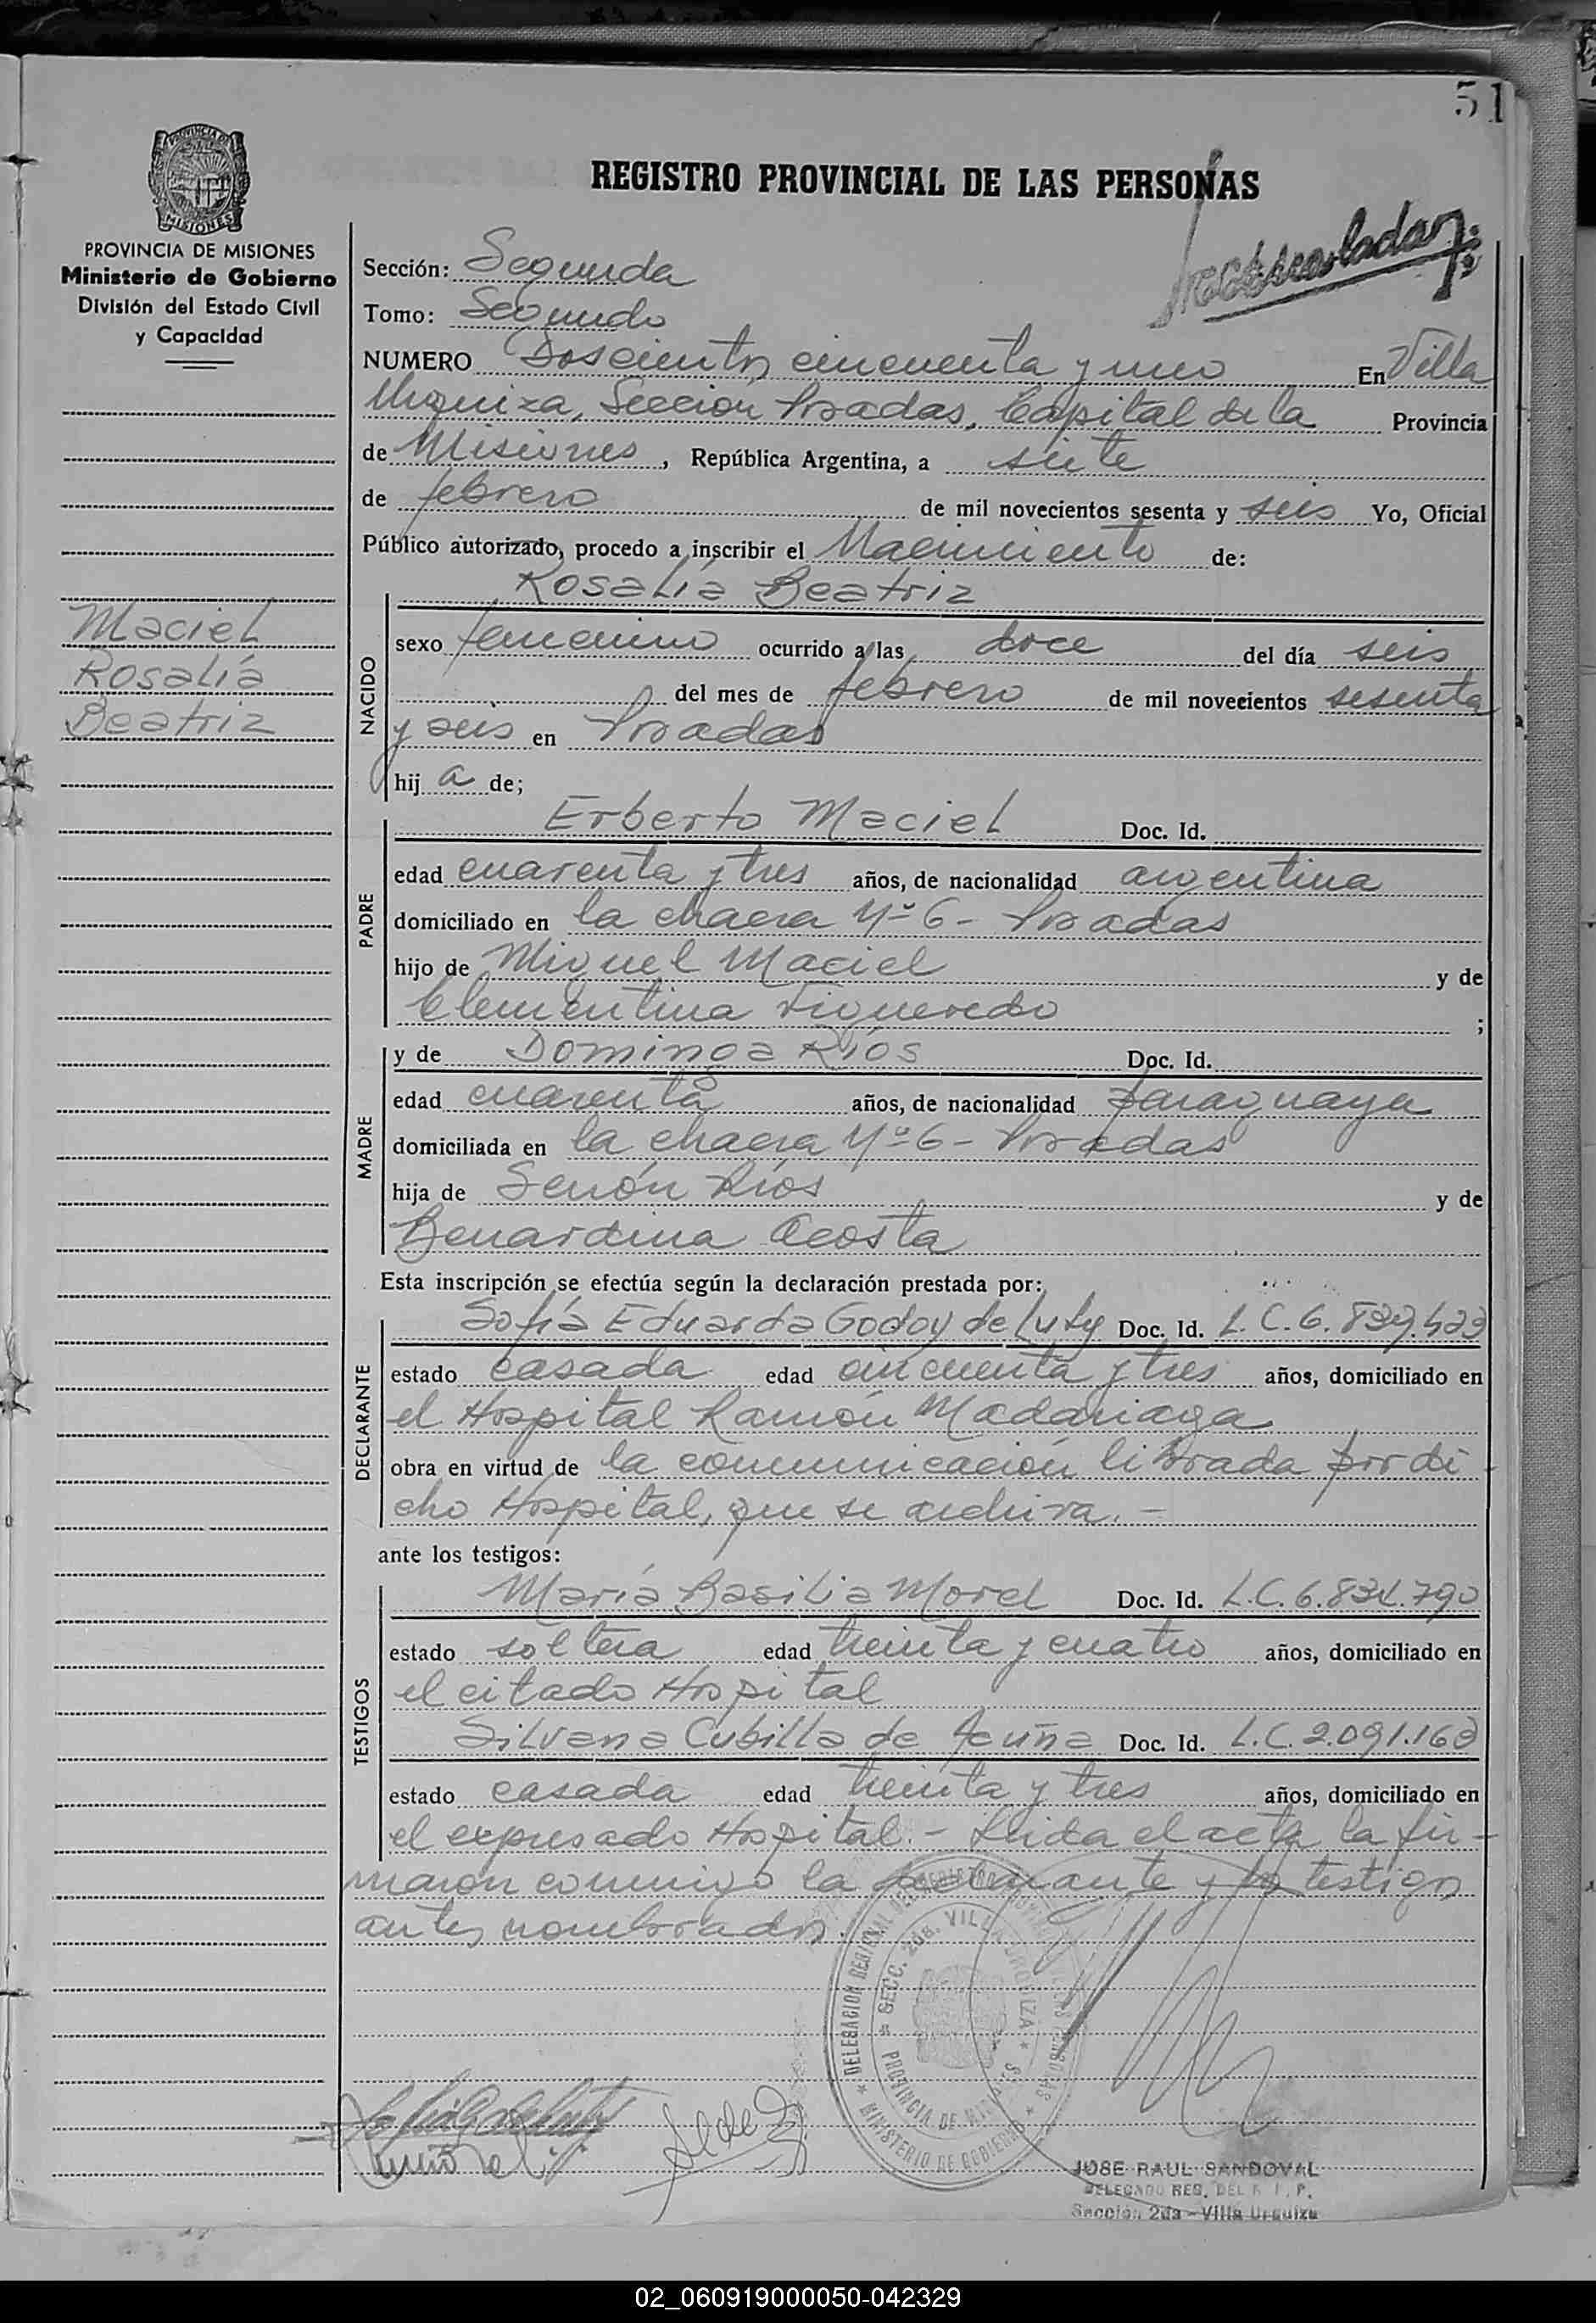 51
PROVINCIA DE MISIONES
Ministerio de Gobierno
División del Estado Civil
y Capacidad
REGISTRO PROVINCIAL DE LAS PERSONAS
Sección: Segunda
Tomo: Segundo
NUMERO Doscientos cincuenta y uno En Villa
Urquiza, Sección Posadas, Capital de la Provincia
de Misiones, República Argentina, a siete
de febrero de mil novecientos sesenta y seis Yo, Oficial
Público autorizado, procedo a inscribir el Nacimiento de:
Rosalía Beatriz
Maciel
Rosalía
Beatriz
NACIDO
sexo femenino ocurrido a las doce del día seis
del mes de febrero de mil novecientos sesenta
y seis en Posadas
hij a de;
PADRE
Erberto Maciel Doc. Id.
edad cuarenta y tres años, de nacionalidad argentina
domiciliado en la chacra Nº 6 - Posadas
hijo de Miguel Maciel y de
Clementina Figueredo ;
MADRE
y de Dominga Ríos Doc. Id.
edad cuarenta años, de nacionalidad paraguaya
domiciliada en la chacra Nº 6 - Posadas
hija de Senón Ríos y de
Benardina Acosta
Esta inscripción se efectúa según la declaración prestada por:
DECLARANTE
Sofía Eduarda Godoy de Doc. Id. L.C. 6.839.423
estado casada edad cincuenta y tres años, domiciliado en
el Hospital Ramón Madariaga
obra en virtud de la comunicación librada por di-
cho Hospital, que se archiva. -
ante los testigos:
TESTIGOS
María Basilia Morel Doc. Id.
estado soltera edad treinta y cuatro años, domiciliado en
el citado Hospital
Silvana Cubilla de Acuña Doc. Id. L.C. 2.091.163
estado casada edad treinta y tres años, domiciliado en
el expresado Hospital. - Leida el acta la fir-
maron conmigo la declarante y los testigos
antes nombrados.
DELEGACION REGIONAL
SECC. 2da. VILLA URQUIZA
PROVINCIA DE
MINISTERIO DE GOBIERNO
JOSE RAUL SANDOVAL
DELEGADO REG. DEL R. P. P.
Sección 2da - Villa Urquiza
02_060919000050-042329